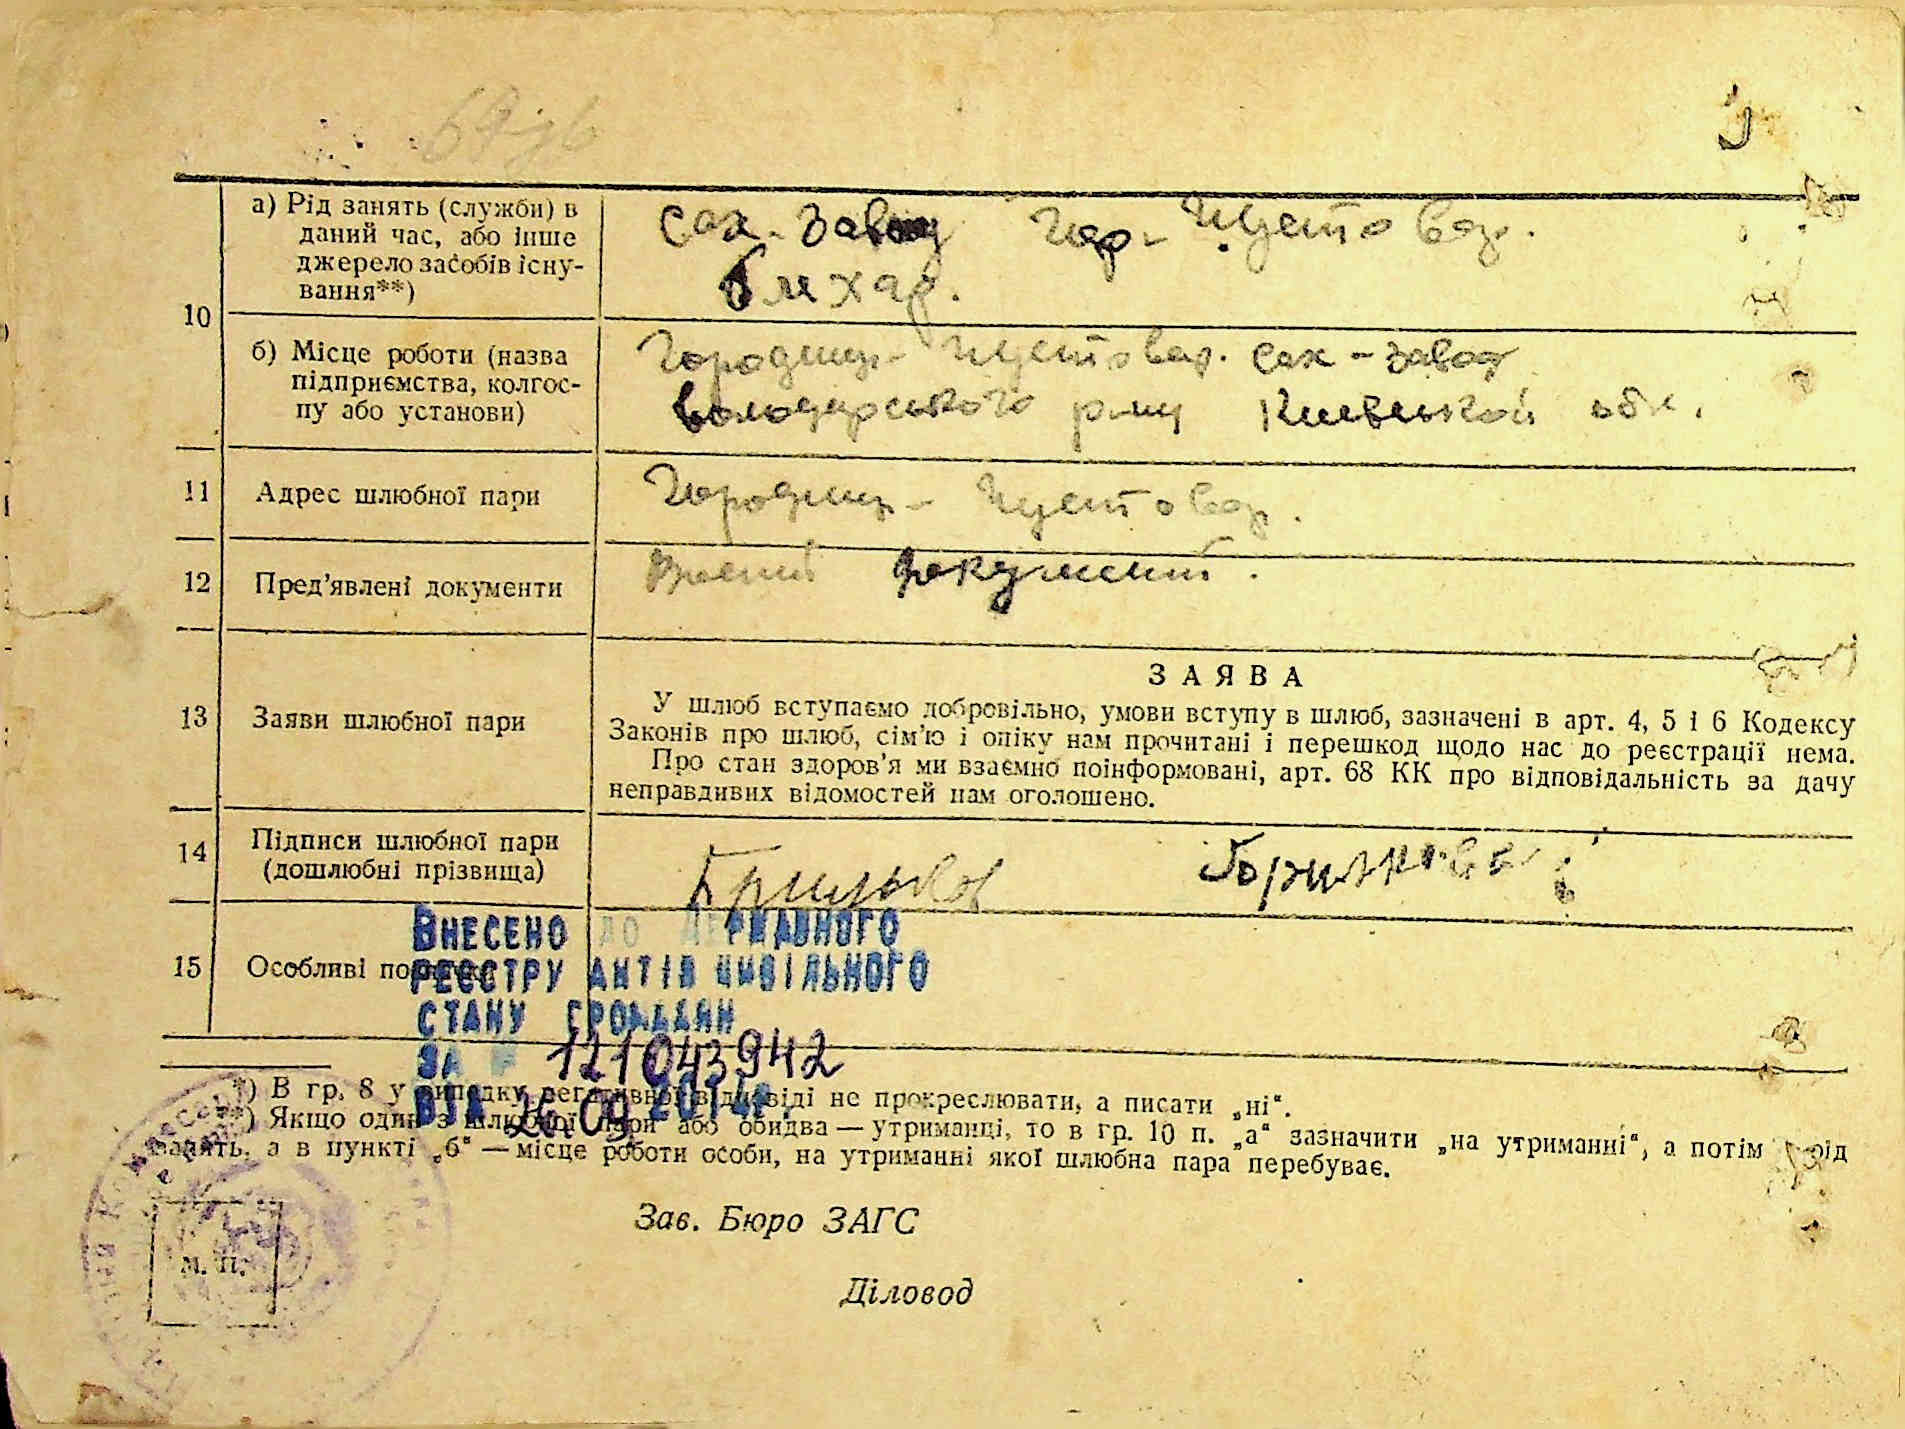 а) Рід занять (служби) в
даний час, або інше
джерело засобів існу-
вання**)
Сах. Завод Гор. Пустовар.
10
б) Місце роботи (назва
підприємства, колгос-
пу або установи)
Городищ- Пустовар. Сах-завод
Володарського р-ну Київської обл.
11 Адрес шлюбної пари
Городищ- Пустовар.
12 Пред'явлені документи
документ.
13 Заяви шлюбної пари
ЗАЯВА
У шлюб вступаємо добровільно, умови вступу в шлюб, зазначені в арт. 4, 5 і 6 Кодексу
Законів про шлюб, сім'ю і опіку нам прочитані і перешкод щодо нас до реєстрації нема.
Про стан здоров'я ми взаємно поінформовані, арт. 68 КК про відповідальність за дачу
неправдивих відомостей нам оголошено.
14 Підписи шлюбної пари
(дошлюбні прізвища)
15 Особливі
ВНЕСЕНО ДО ДЕРЖАВНОГО
РЕЄСТРУ АКТІВ ЦИВІЛЬНОГО
СТАНУ ГРОМАДЯН
ЗА № 121043942
ВІД 26.09 2014р.
*) В гр. 8 у випадку негативної відповіді не прокреслювати, а писати „ні“.
**) Якщо один з шлюбної пари або обидва — утриманці, то в гр. 10 п. „а“ зазначити „на утриманні“, а потім рід
занять, а в пункті „б“ — місце роботи особи, на утриманні якої шлюбна пара перебуває.
М. П.
Зав. Бюро ЗАГС
Діловод